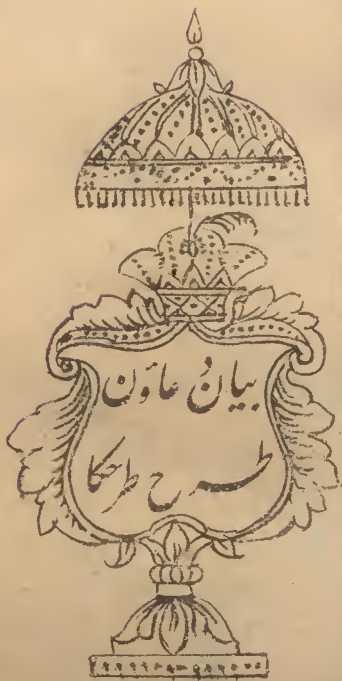 بیان دُعاؤن
طرح طرحکا